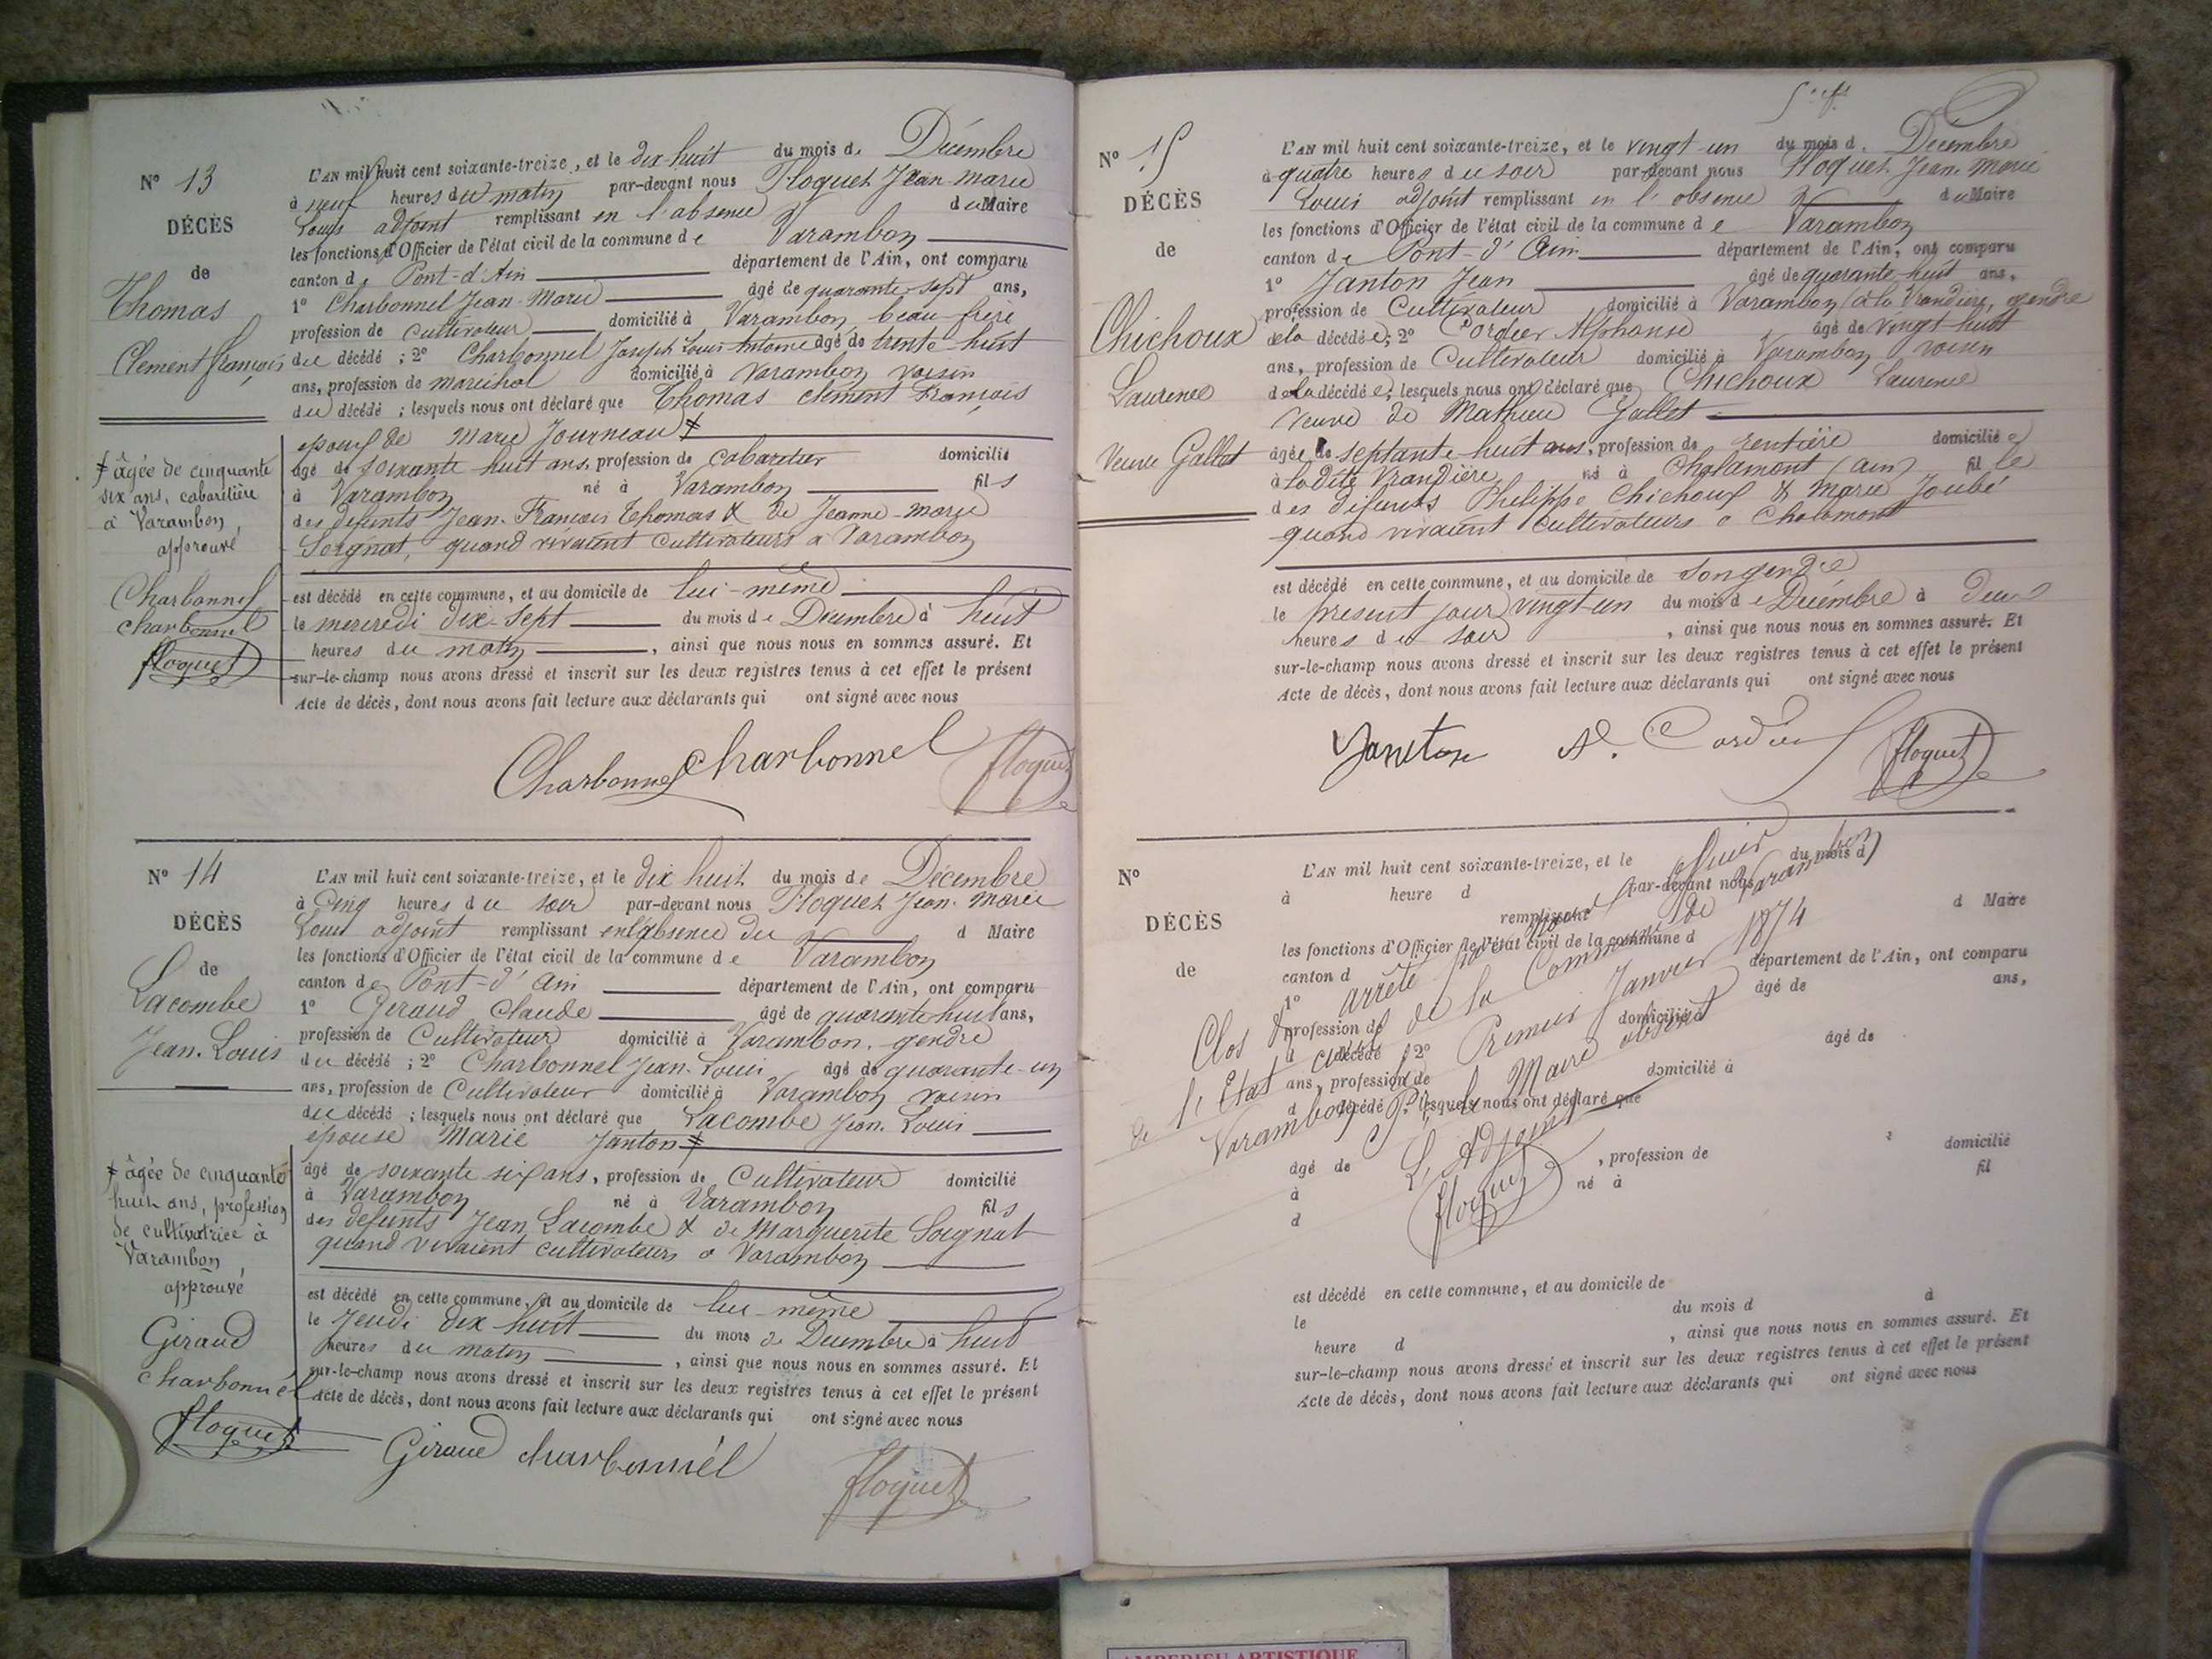 N° 13
DÉCÈS
de
Thomas
Clément François
L'AN mil huit cent soixante-treize, et le dix-huit du mois de Décembre
à neuf heures du matin par-devant nous Floquet Jean-Marie
Louis adjoint remplissant en l'absence du Maire
les fonctions d'Officier de l'état civil de la commune de Varambon
canton de Pont-d'Ain département de l'Ain, ont comparu
1° Charbonnel Jean-Marie âgé de quarante-sept ans,
profession de cultivateur domicilié à Varambon, beau-frère
du décédé ; 2° Charbonnel Joseph Louis Antoine âgé de trente-huit
ans, profession de maréchal domicilié à Varambon voisin
du décédé ; lesquels nous ont déclaré que Thomas Clément François
époux de Marie Journeau ‡
âgé de soixante huit ans, profession de cabaretier domicilié
à Varambon né à Varambon fils
des défunts Jean-François Thomas & de Jeanne-Marie
Soignat, quand vivaient cultivateurs à Varambon
‡ âgée de cinquante
six ans, cabaretière
à Varambon,
approuvé
Charbonnel
charbonnel
floquet
est décédé en cette commune, et au domicile de lui-même
le mercredi dix-sept du mois de Décembre à huit
heures du matin, ainsi que nous nous en sommes assuré. Et
sur-le-champ nous avons dressé et inscrit sur les deux registres tenus à cet effet le présent
Acte de décès, dont nous avons fait lecture aux déclarants qui ont signé avec nous
Charbonnel charbonnel floquet
N° 14
DÉCÈS
de
Lacombe
Jean-Louis
L'AN mil huit cent soixante-treize, et le dix huit du mois de Décembre
à cinq heures du soir par-devant nous Floquet Jean-Marie
Louis adjoint remplissant en l'absence du d Maire
les fonctions d'Officier de l'état civil de la commune de Varambon
canton de Pont-d'Ain département de l'Ain, ont comparu
1° Geraud Claude âgé de quarante huit ans,
profession de Cultivateur domicilié à Varambon, gendre
du décédé ; 2° Charbonnel Jean-Louis âgé de quarante-un
ans, profession de Cultivateur domicilié à Varambon voisin
du décédé ; lesquels nous ont déclaré que Lacombe Jean Louis
épouse Marie Janton ‡
âgé de soixante six ans, profession de Cultivateur domicilié
à Varambon né à Varambon fils
des défunts Jean Lacombe & de Marguerite Soignat
quand vivaient cultivateurs à Varambon
‡ âgée de cinquante
huit ans, profession
de cultivatrice à
Varambon,
approuvé
Giraud
charbonnél
floquet
est décédé en cette commune, et au domicile de lui-même
le Jeudi dix huit du mois de Décembre à huit
heures du matin, ainsi que nous nous en sommes assuré. Et
sur-le-champ nous avons dressé et inscrit sur les deux registres tenus à cet effet le présent
Acte de décès, dont nous avons fait lecture aux déclarants qui ont signé avec nous
Giraud charbonnél floquet
N° 15
DÉCÈS
de
Chichoux
Laurence
Veuve Gallet
L'AN mil huit cent soixante-treize, et le vingt-un du mois d. Décembre
à quatre heures du soir par-devant nous Floquet Jean-Marie
Louis adjoint remplissant en l'absence du Maire
les fonctions d'Officier de l'état civil de la commune de Varambon
canton de Pont-d'Ain département de l'Ain, ont comparu
1° Janton Jean âgé de quarante-huit ans,
profession de Cultivateur domicilié à Varambon (à la Vrandière, gendre
de la décédée ; 2° Cordier Alphonse âgé de vingt huit
ans, profession de Cultivateur domicilié à Varambon voisin
de la décédée, lesquels nous ont déclaré que Chichoux Laurence
veuve de Mathieu Gallet
âgée de septante-huit ans, profession de rentière domiciliée
à ladite Vrandière né à Chalamont (Ain) fille
des défunts Philippe Chichoux & Marie Joubé
quand vivaient cultivateurs à Chalamont
est décédé en cette commune, et au domicile de son gendre
le présent jour vingt-un du mois de Décembre à deux
heures du soir, ainsi que nous nous en sommes assuré. Et
sur-le-champ nous avons dressé et inscrit sur les deux registres tenus à cet effet le présent
Acte de décès, dont nous avons fait lecture aux déclarants qui ont signé avec nous
Janton A. Cordier floquet
N°
DÉCÈS
de
L'AN mil huit cent soixante-treize, et le du mois d
à heure d par-devant nous
remplissant d Maire
les fonctions d'Officier de l'état civil de la commune d
canton d département de l'Ain, ont comparu
1° âgé de ans,
profession de domicilié à
d décédé ; 2° âgé de
ans, profession de domicilié à
d décédé ; lesquels nous ont déclaré que
âgé de , profession de domicilié
à né à fil
d
Clos & arrêté par nous
de l'Etat civil de la Commune de Varambon
Varambon Premier Janvier 1874
Pr le Maire absent
L'Adjoint
floquet
est décédé en cette commune, et au domicile de
le du mois d à
heure d , ainsi que nous nous en sommes assuré. Et
sur-le-champ nous avons dressé et inscrit sur les deux registres tenus à cet effet le présent
Acte de décès, dont nous avons fait lecture aux déclarants qui ont signé avec nous
AMBERIEU ARTISTIQUE